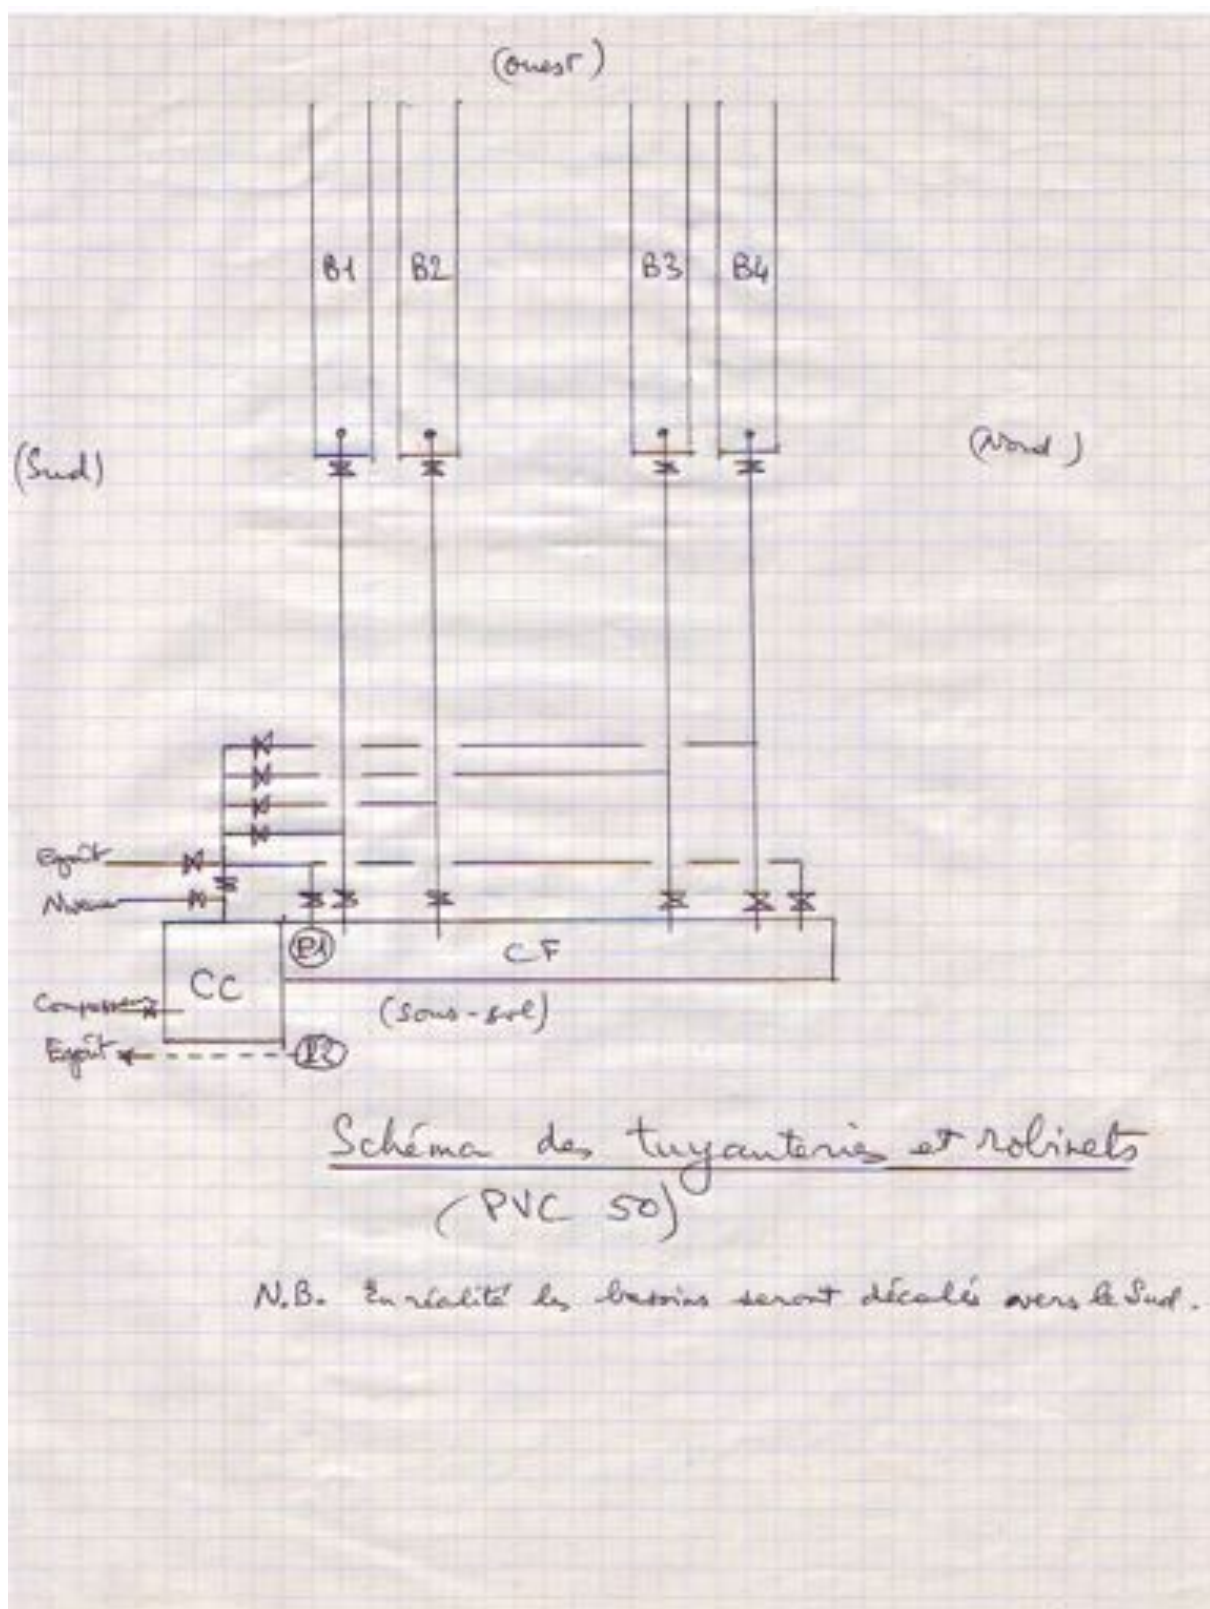 (ouest)
B1 B2 B3 B4
(Sud)
(Nord)
Egoût
Niveau
P1
CF
CC
(sous-sol)
Egoût
P2
Schéma des tuyauteries et robinets
(PVC 50)
N.B. En réalité les bassins seront décalés vers le Sud.